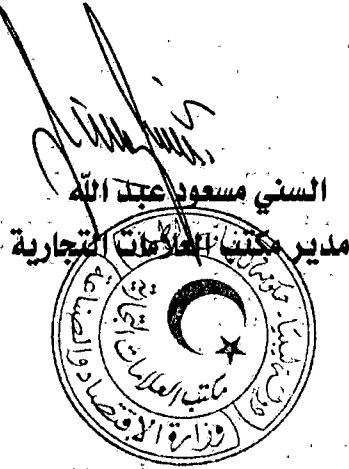 السني مسعود عبد الله
مدير مكتب العلامات التجارية
دولة ليبيا - حكومة
مكتب العلامات التجارية
وزارة الاقتصاد والصناعة